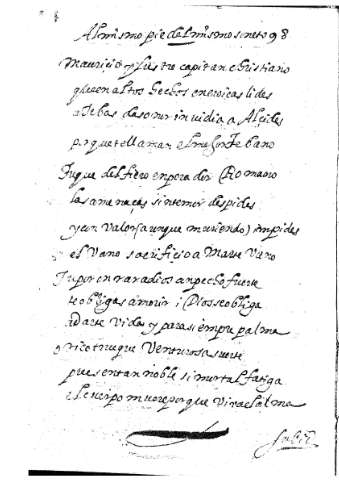 Al mismo pie del mismo soneto 98
Mauricio yllustre capitan christiano
que en altos hechos en eroicas lides
a Tebas das onrra invidia a Alçides
porque te llaman el mejor Tebano
Tu que del fiero enperador Romano
las amenaças sin temor despides
y con valor (aunque muriendo) inpides
el vano sacrificio a Marte vano
Tu por entrar a dios an pecho fuerte
te obligas a morir i Dios se obliga
a darte vida y para siempre palma
o rico trueque venturosa suerte
pues en tan noble si mortal fatiga
el cuerpo muere porque viva el alma